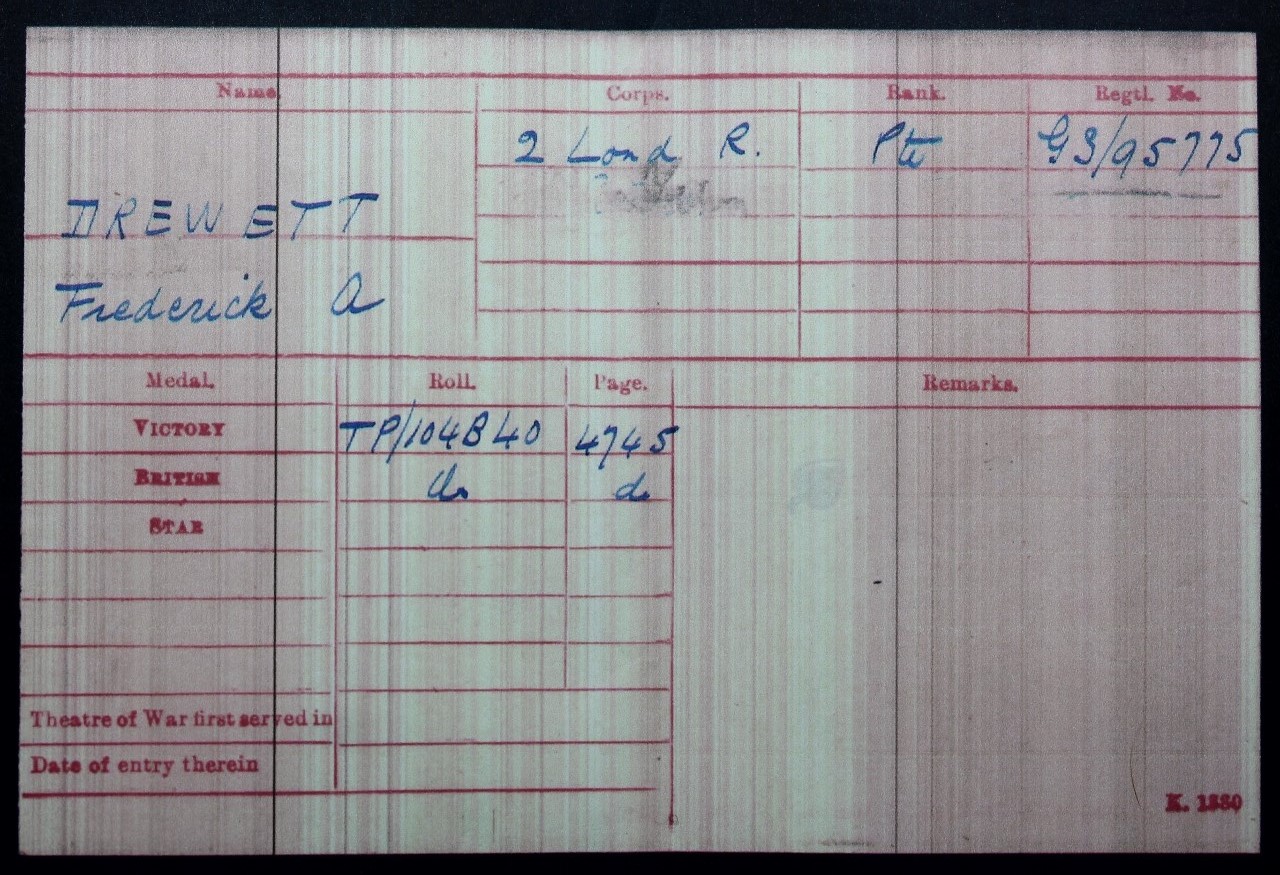 Name. Corps. Rank. Regtl. No.
2 Lond R. Pte GS/95775
DREWETT
Frederick A
Medal. Roll. Page. Remarks.
VICTORY TP/104B40 4745
BRITISH do do
STAR
Theatre of War first served in
Date of entry therein
K. 1380